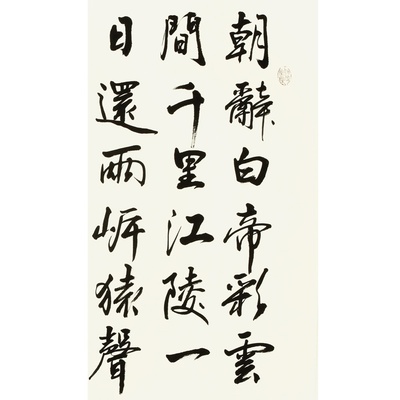 朝辭白帝彩雲
間千里江陵一
日還兩岸猿聲